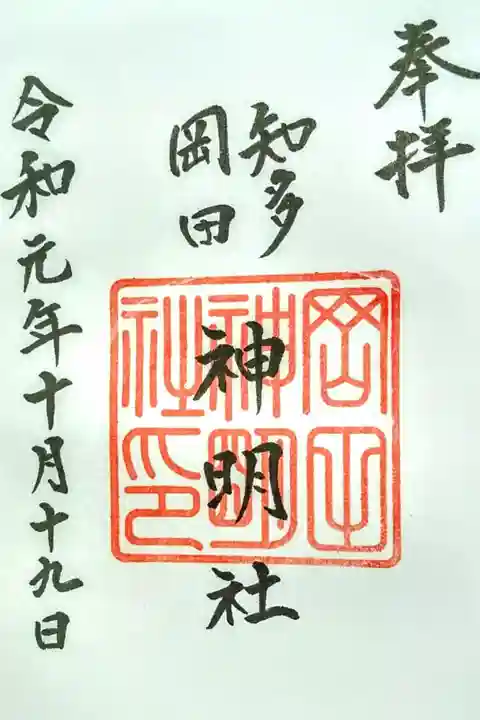 奉拝
知多
岡田
神明社
岡田
神明
社印
令和元年十月十九日